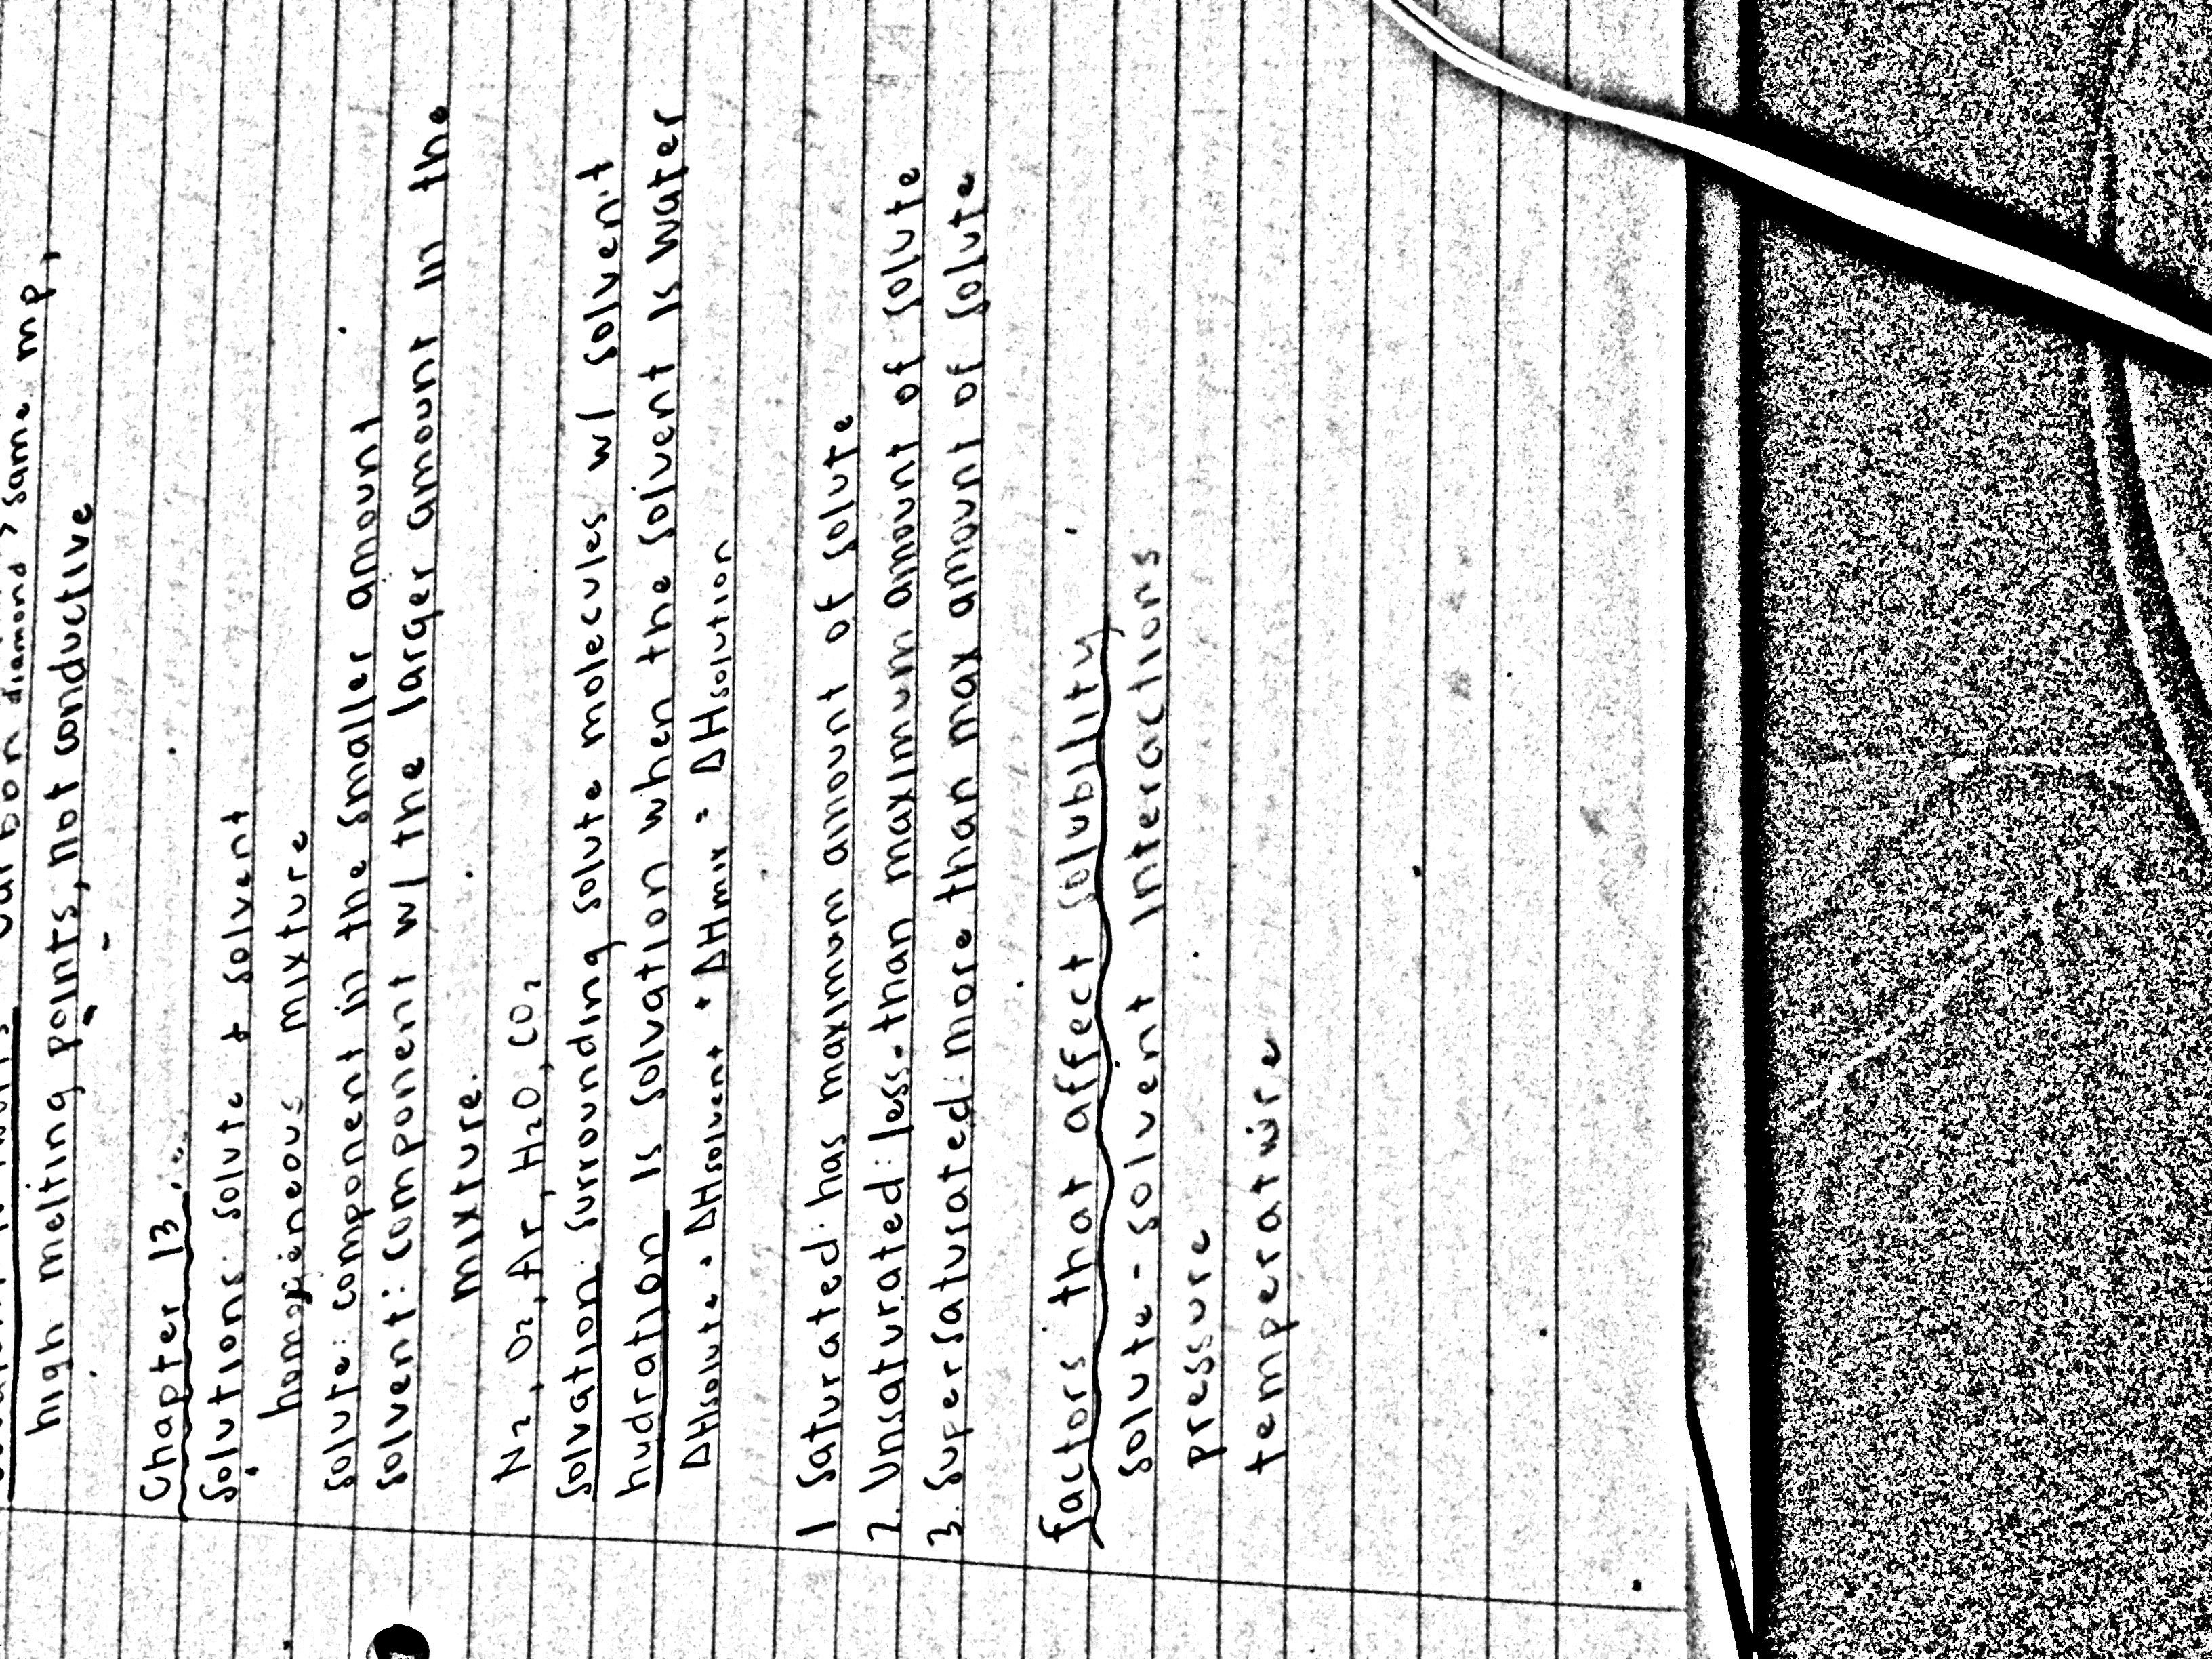 carbon diamond > same mp,
high melting points, not conductive
Chapter 13
Solutions: solute + solvent
homogeneous mixture
solute: component in the smaller amount
solvent: component w/ the larger amount in the
mixture.
N₂, O₂, Ar, H₂O, CO₂
Solvation: surrounding solute molecules w/ solvent
hydration is solvation when the solvent is water
ΔHsolute + ΔHsolvent + ΔHmix = ΔHsolution
1 Saturated: has maximum amount of solute
2. Unsaturated: less than maximum amount of solute
3. Supersaturated: more than max amount of solute
factors that affect solubility
solute - solvent interactions
pressure
temperature